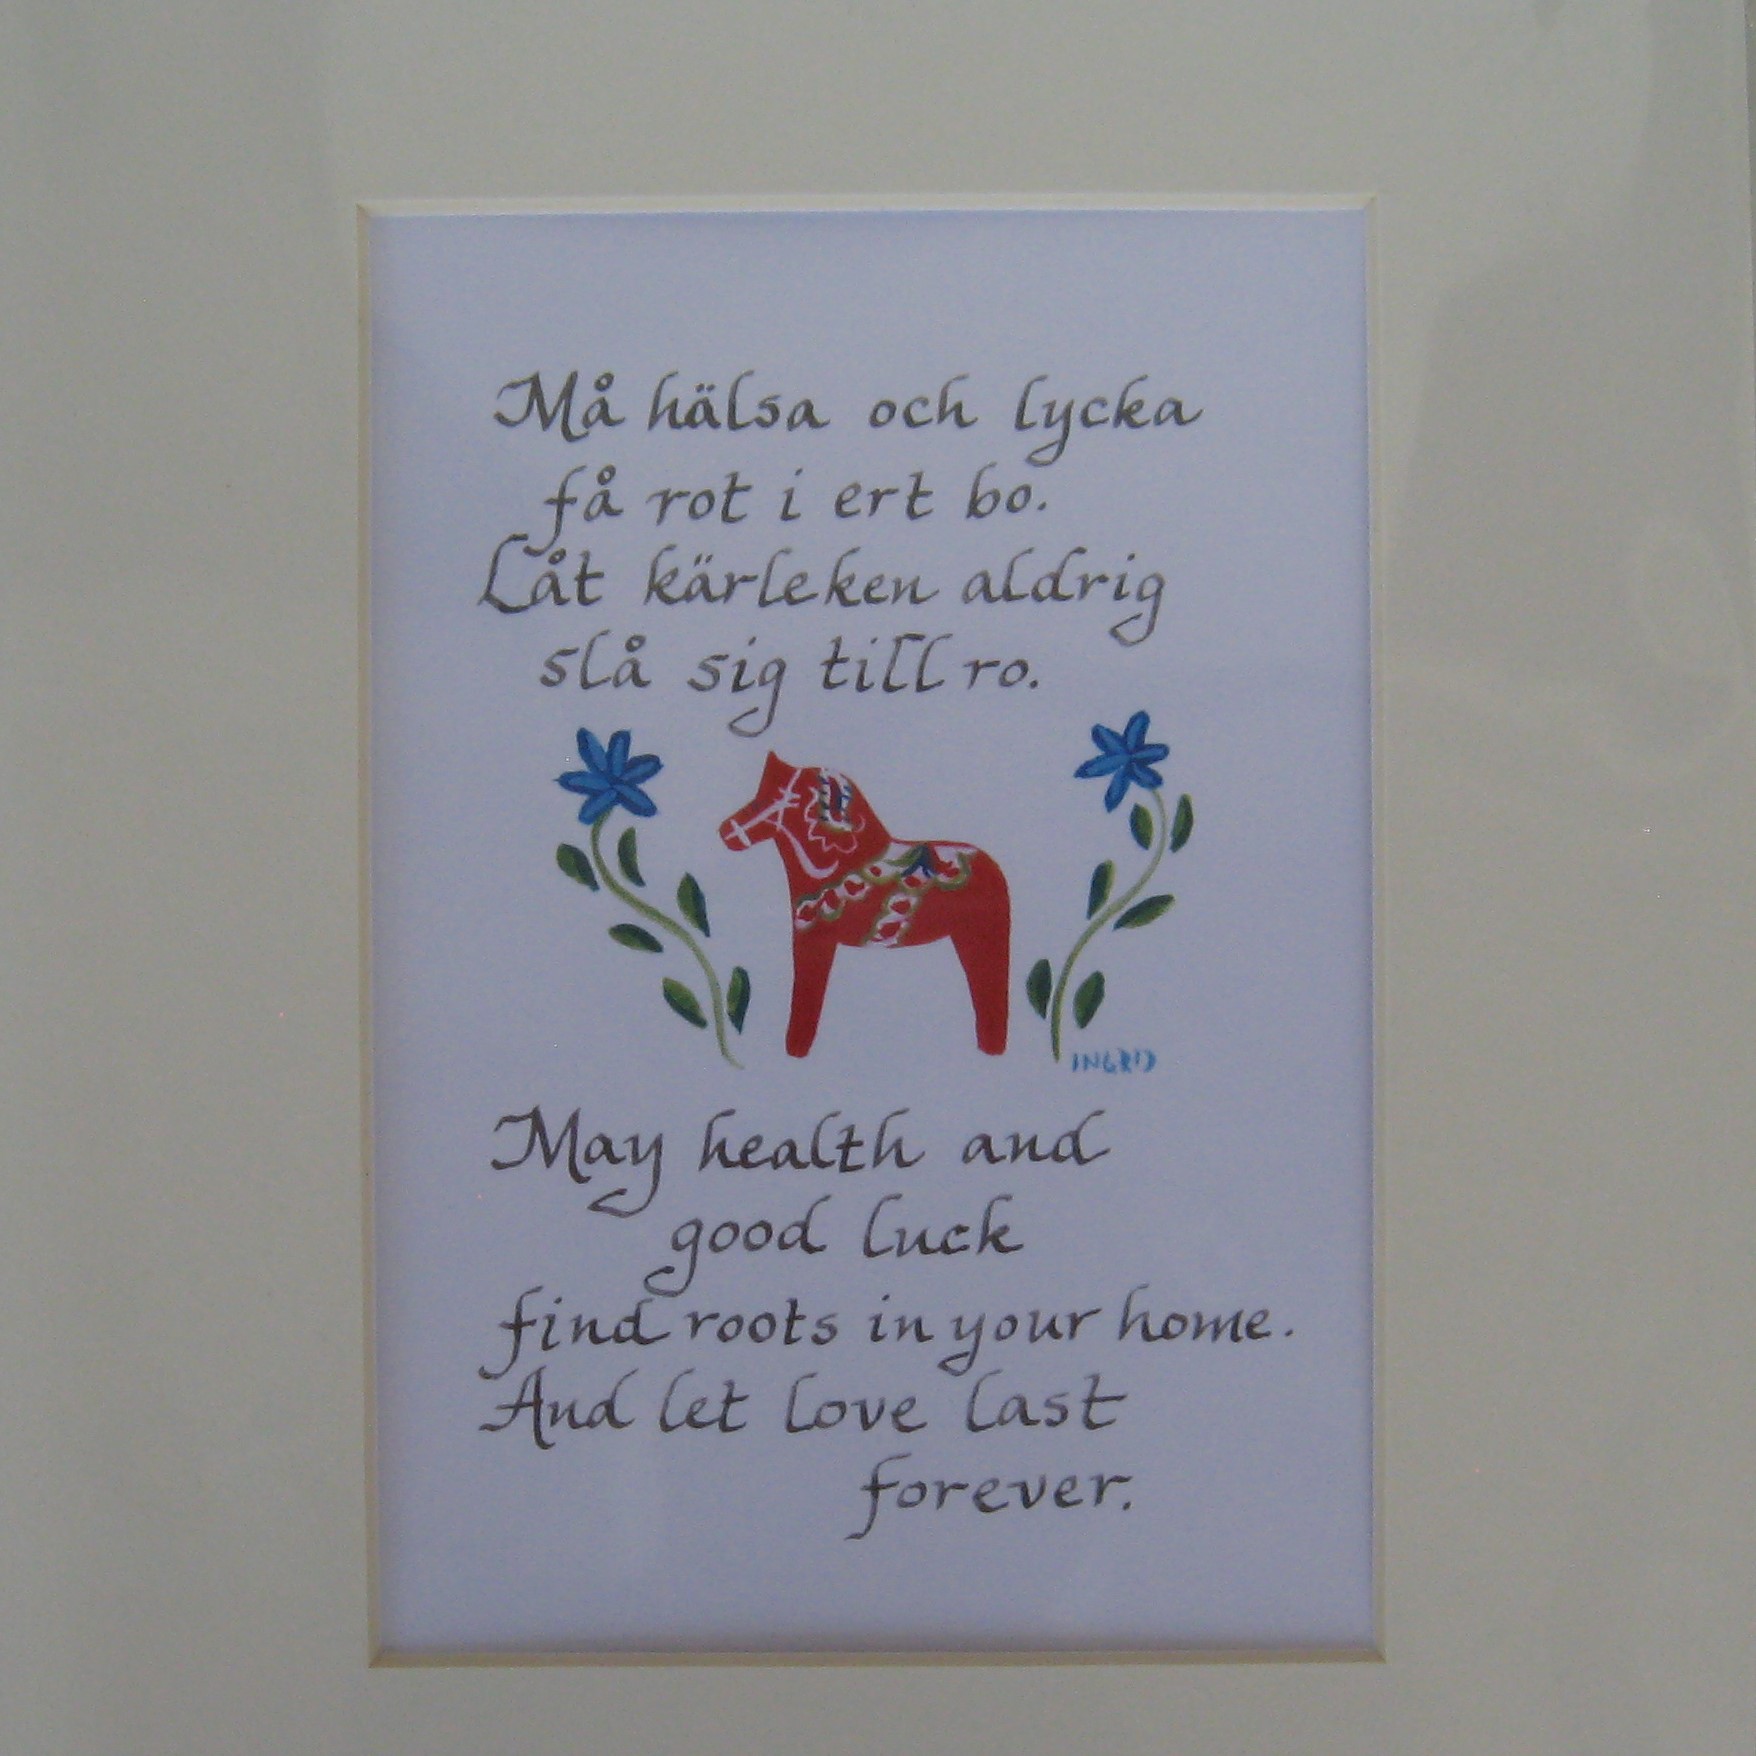 Må hälsa och lycka
få rot i ert bo.
Låt kärleken aldrig
slå sig till ro.
INGRID
May health and
good luck
find roots in your home.
And let love last
forever.